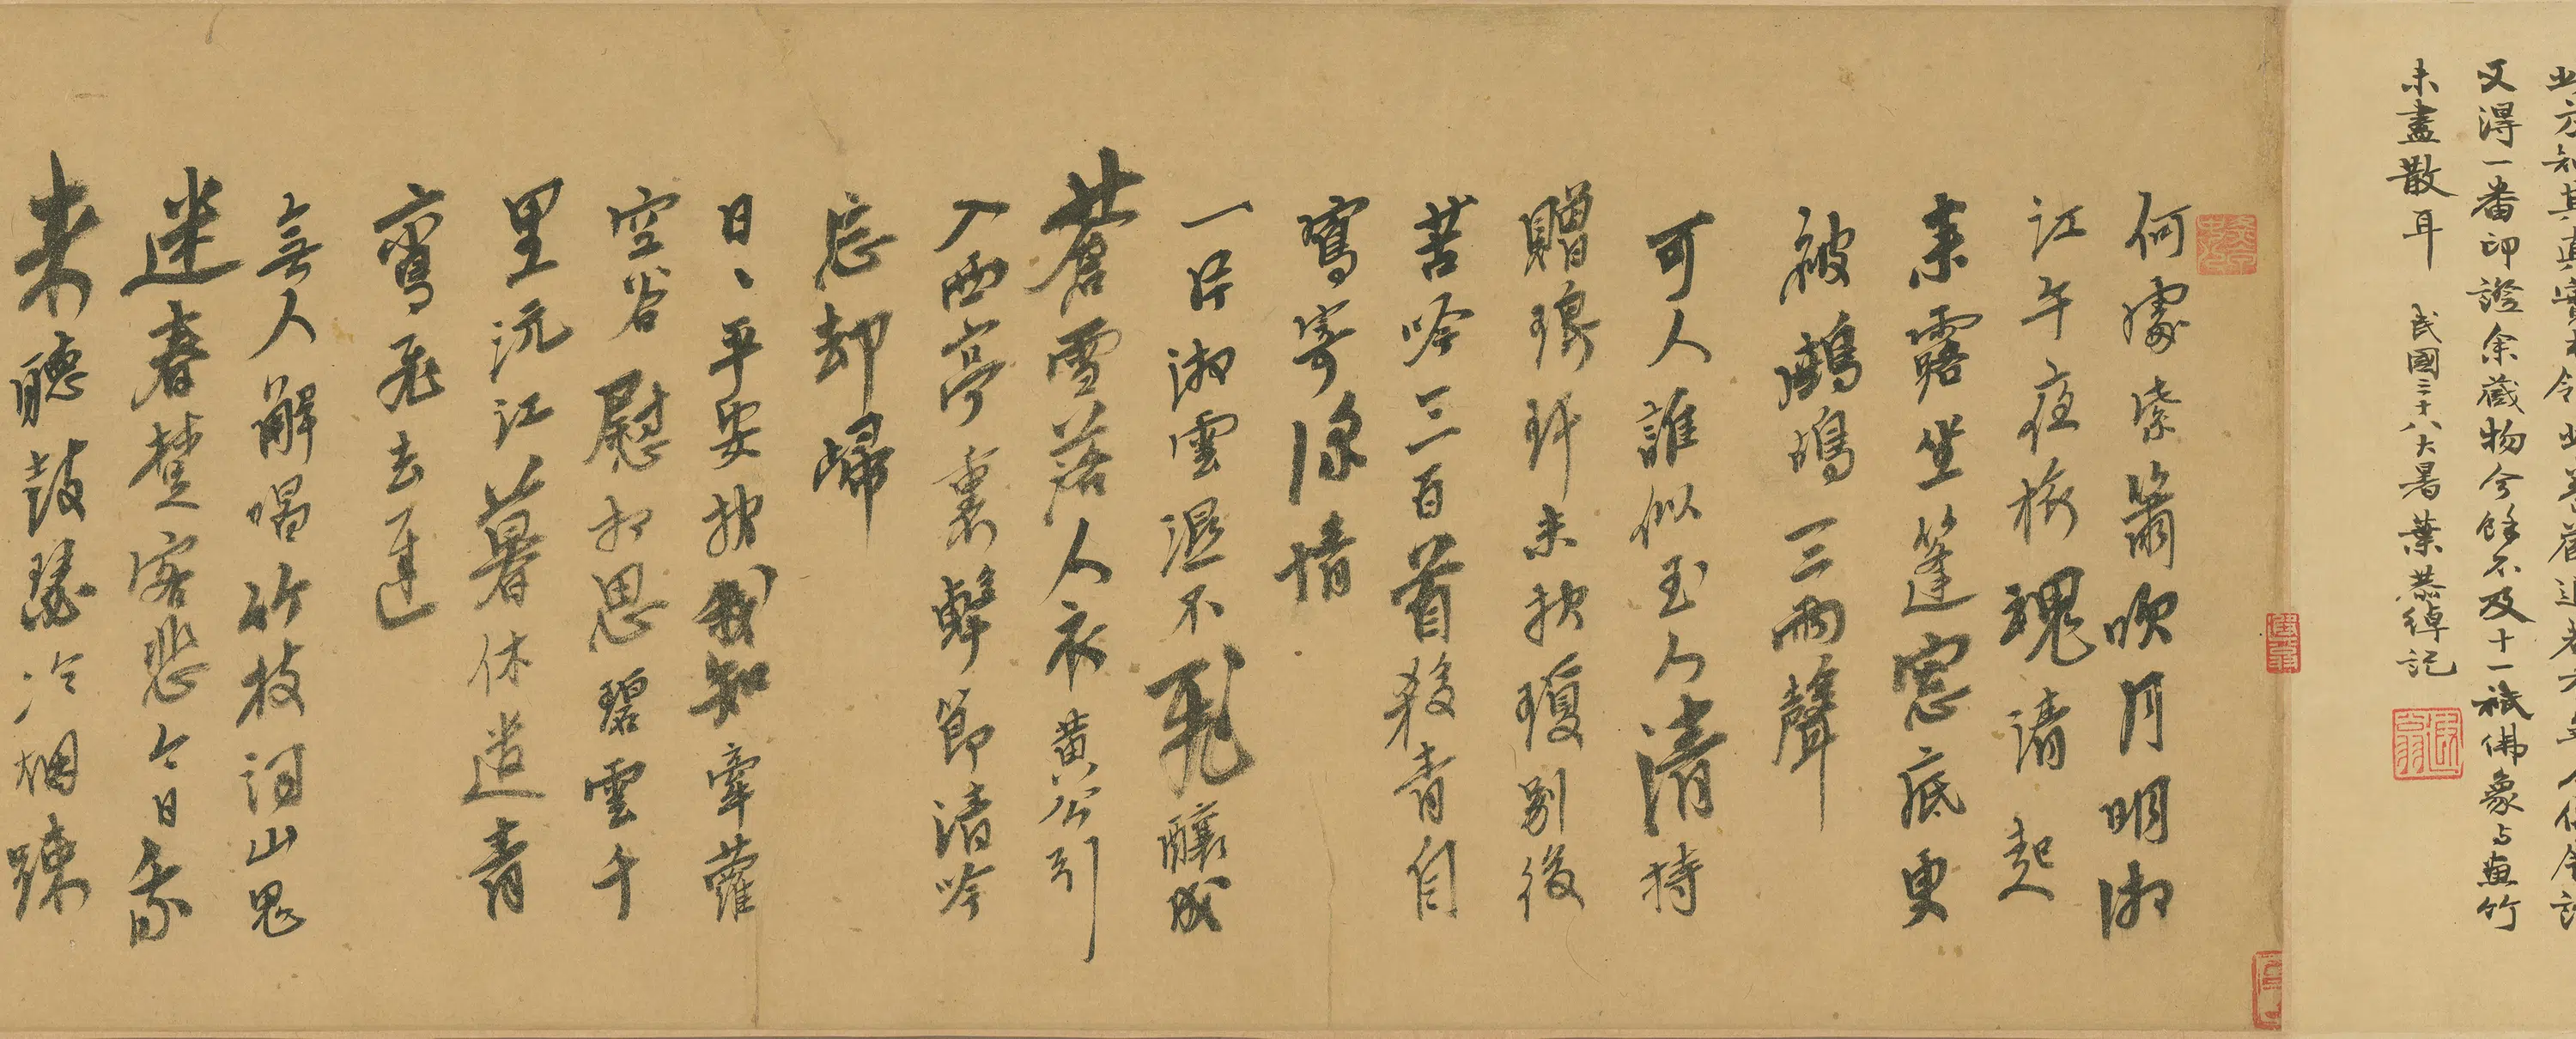 又得一番印證余藏物今餘不及十一祇佛象与畫竹
未盡散耳 民國三十八大暑葉恭綽記
何處紫簫吹月明湘
江午夜楚魂清起
來露坐篷窗底更
被鷓鴣三兩聲
可人誰似玉人清特
贈琅玕未報瓊別後
苦吟三百首殺青自
寫寄深情
一片湘雲濕不飛釀成
蒼雪落人衣黃公引
入西亭裏擊節清吟
忘却歸
日〻平安報我知牽蘿
空谷慰相思碧雲千
里沅江暮休遣青
鸞飛去遲
無人解唱竹枝詞山鬼
迷春楚客悲今日我
來聽鼓瑟冷烟疎